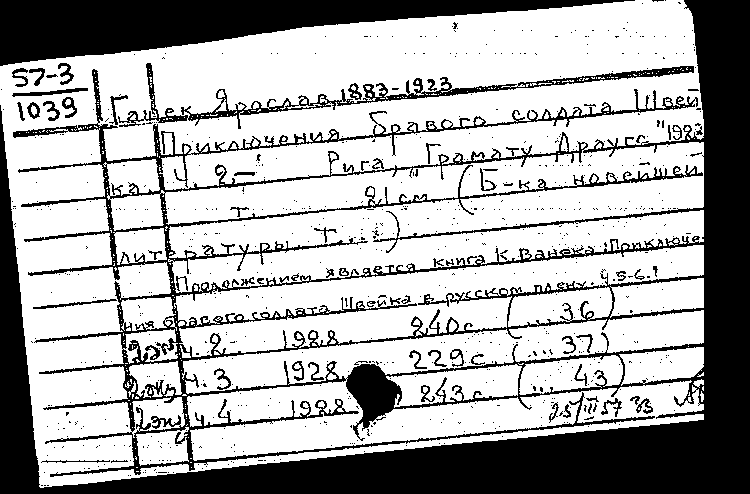 57-3
1039
Гашек, Ярослав, 1883-1923
Приключения бравого солдата Швей
ка. Ч. 2.- Рига, "Грамату Драугс," 1928
т. 21 см. (Б-ка новейшей
литературы. Т...)
Продолжением является книга К. Ванека "Приключе-
ния бравого солдата Швейка в русском плену". Ч. 5-6.!
2 экз ч. 2. 1928. 240 с. (... 36)
2 экз ч. 3. 1928. 229 с. (... 37)
2 экз ч. 4. 1928. 243 с. (... 43)
25/III 57